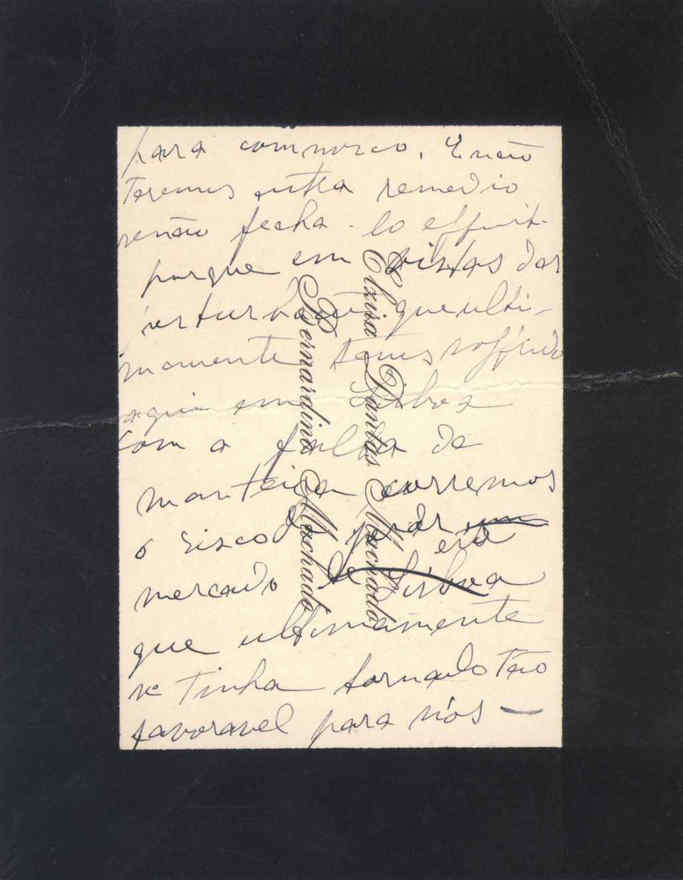 para comnosco. E não
teremos outro remedio
senão fecha-lo
porque em vistas das
que ulti-
mamente temos soffrido
aqui em Lisboa
com a falta de
manteiga corremos
o risco de
mercado de Lisboa
que ultimamente
se tinha tornado tão
favoravel para nós —
Elzira Dantas Machado
Bernardino Machado